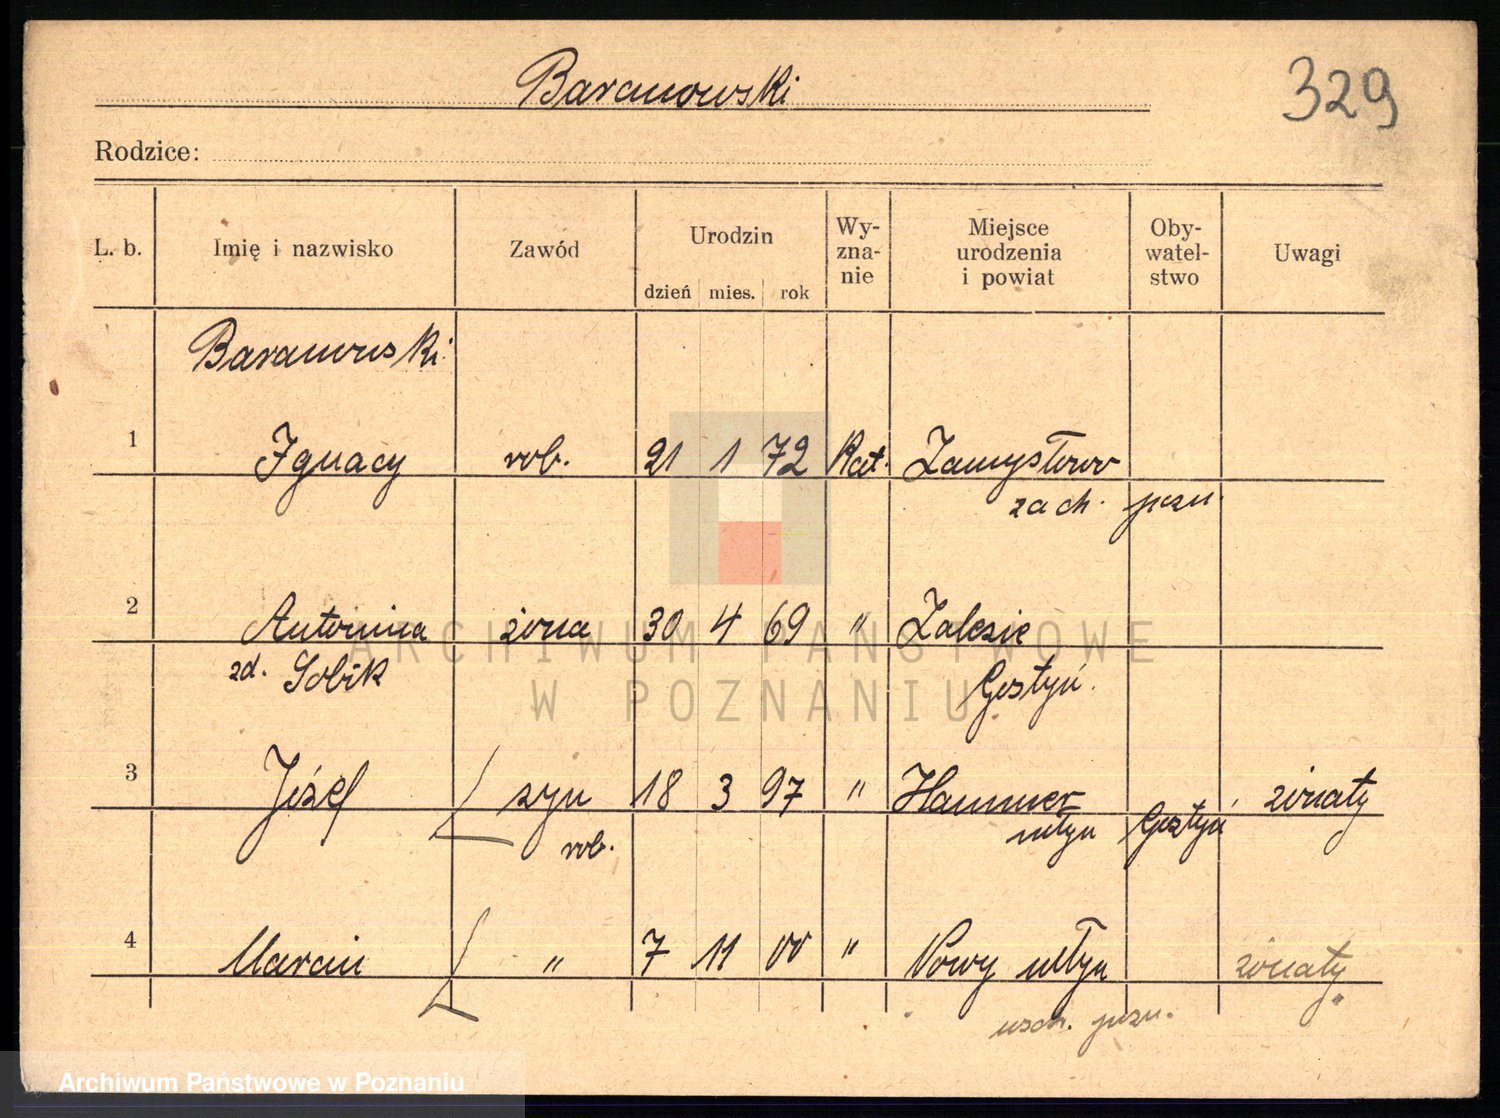 Baranowski
329
Rodzice:
L. b. Imię i nazwisko Zawód Urodzin dzień mies. rok Wy-zna-nie Miejsce urodzenia i powiat Oby-watel-stwo Uwagi
Baranowski
1 Ignacy rob. 21 1 72 Kat. Zamysłowo
zach. pozn.
2 Antonina żona 30 4 69 " Zalesie
zd. Sobik Gostyń.
3 Józef syn 18 3 97 " Hammer żonaty
rob. młyn Gostyń
4 Marcin " 7 11 00 " Nowy młyn żonaty
wsch. pozn.
ARCHIWUM PAŃSTWOWE
W POZNANIU
Archiwum Państwowe w Poznaniu